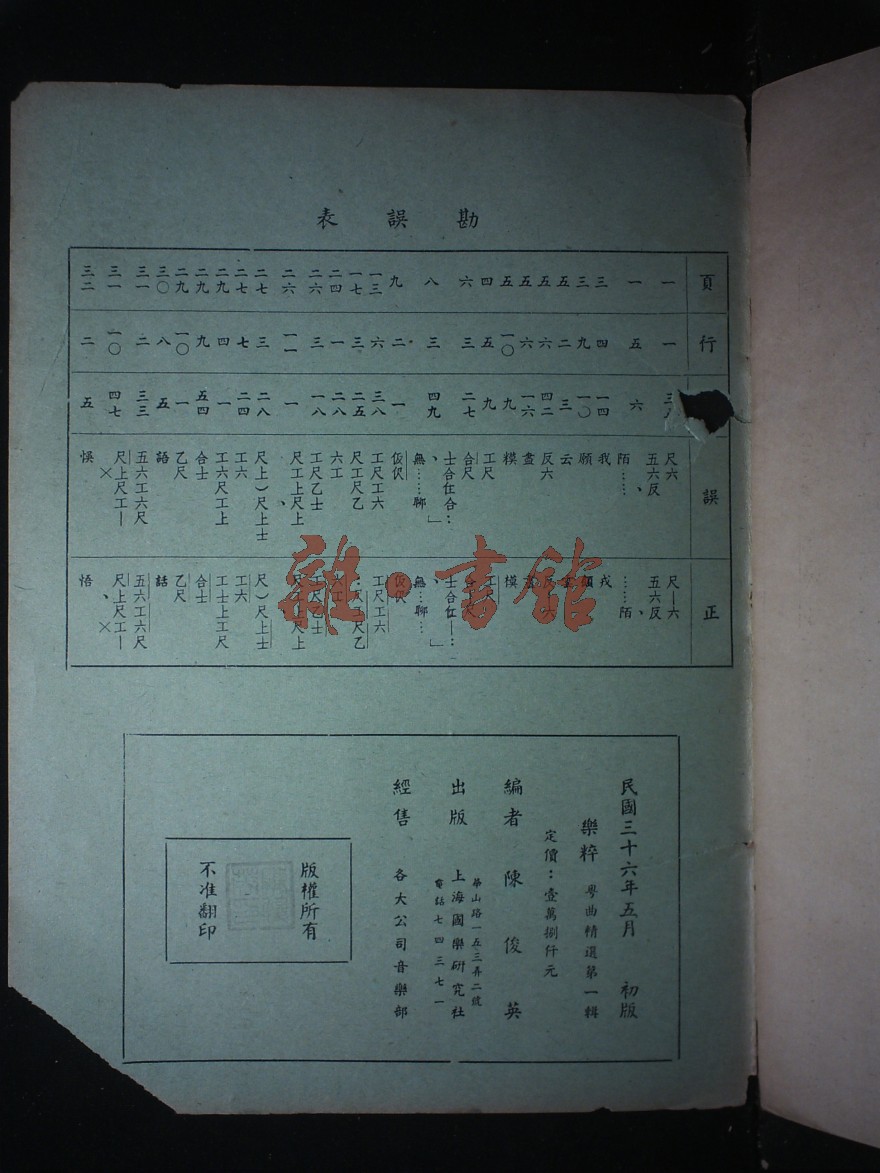 勘誤表
頁 行 誤 正
一 一 尺六 尺—六
五六反、 五六反、
一 五 六 陌…… ……陌
三 四 一四 我 戎
三 九 一〇 願 顧
五 二 三 云
五 六 四二 反六
五 六 一六 畫
五 一〇 九 糢 模
四 五 九 工尺 工尺
六 三 二七 合尺 合
士合仩合： 士合仜—…
八 三 四九 、無……聊」 、無…聊…」
九 二 一 仮伬 仮伬
一三 六 三八 工尺工六 工尺工六
一七 三 二五 尺工尺乙 ：工尺乙
二四 一 二八 六工 六工
二六 三 一八 工尺乙士 工尺乙士
二六 一一 一 尺工上尺上 尺工上尺上
二七 三 二八 尺上）尺上士 尺）尺上士
二七 七 二四 工六 工六
二九 四 一 工六尺工上 工士上工尺
二九 九 五四 合士 合士
二九 一〇 一 乙尺 乙尺
三〇 八 五 語 話
三一 二 三三 五六工六尺 五六工六尺
三一 一〇 四七 尺上尺工— × 尺上尺工— 、×
三二 二 五 悮 悟
民國三十六年五月 初版
樂粹 粵曲精選第一輯
定價：壹萬捌仟元
編者 陳俊英
華山路一五三弄二號
出版 上海國樂研究社
電話七四三七一
經售 各大公司音樂部
版權所有
不准翻印
雜·書館